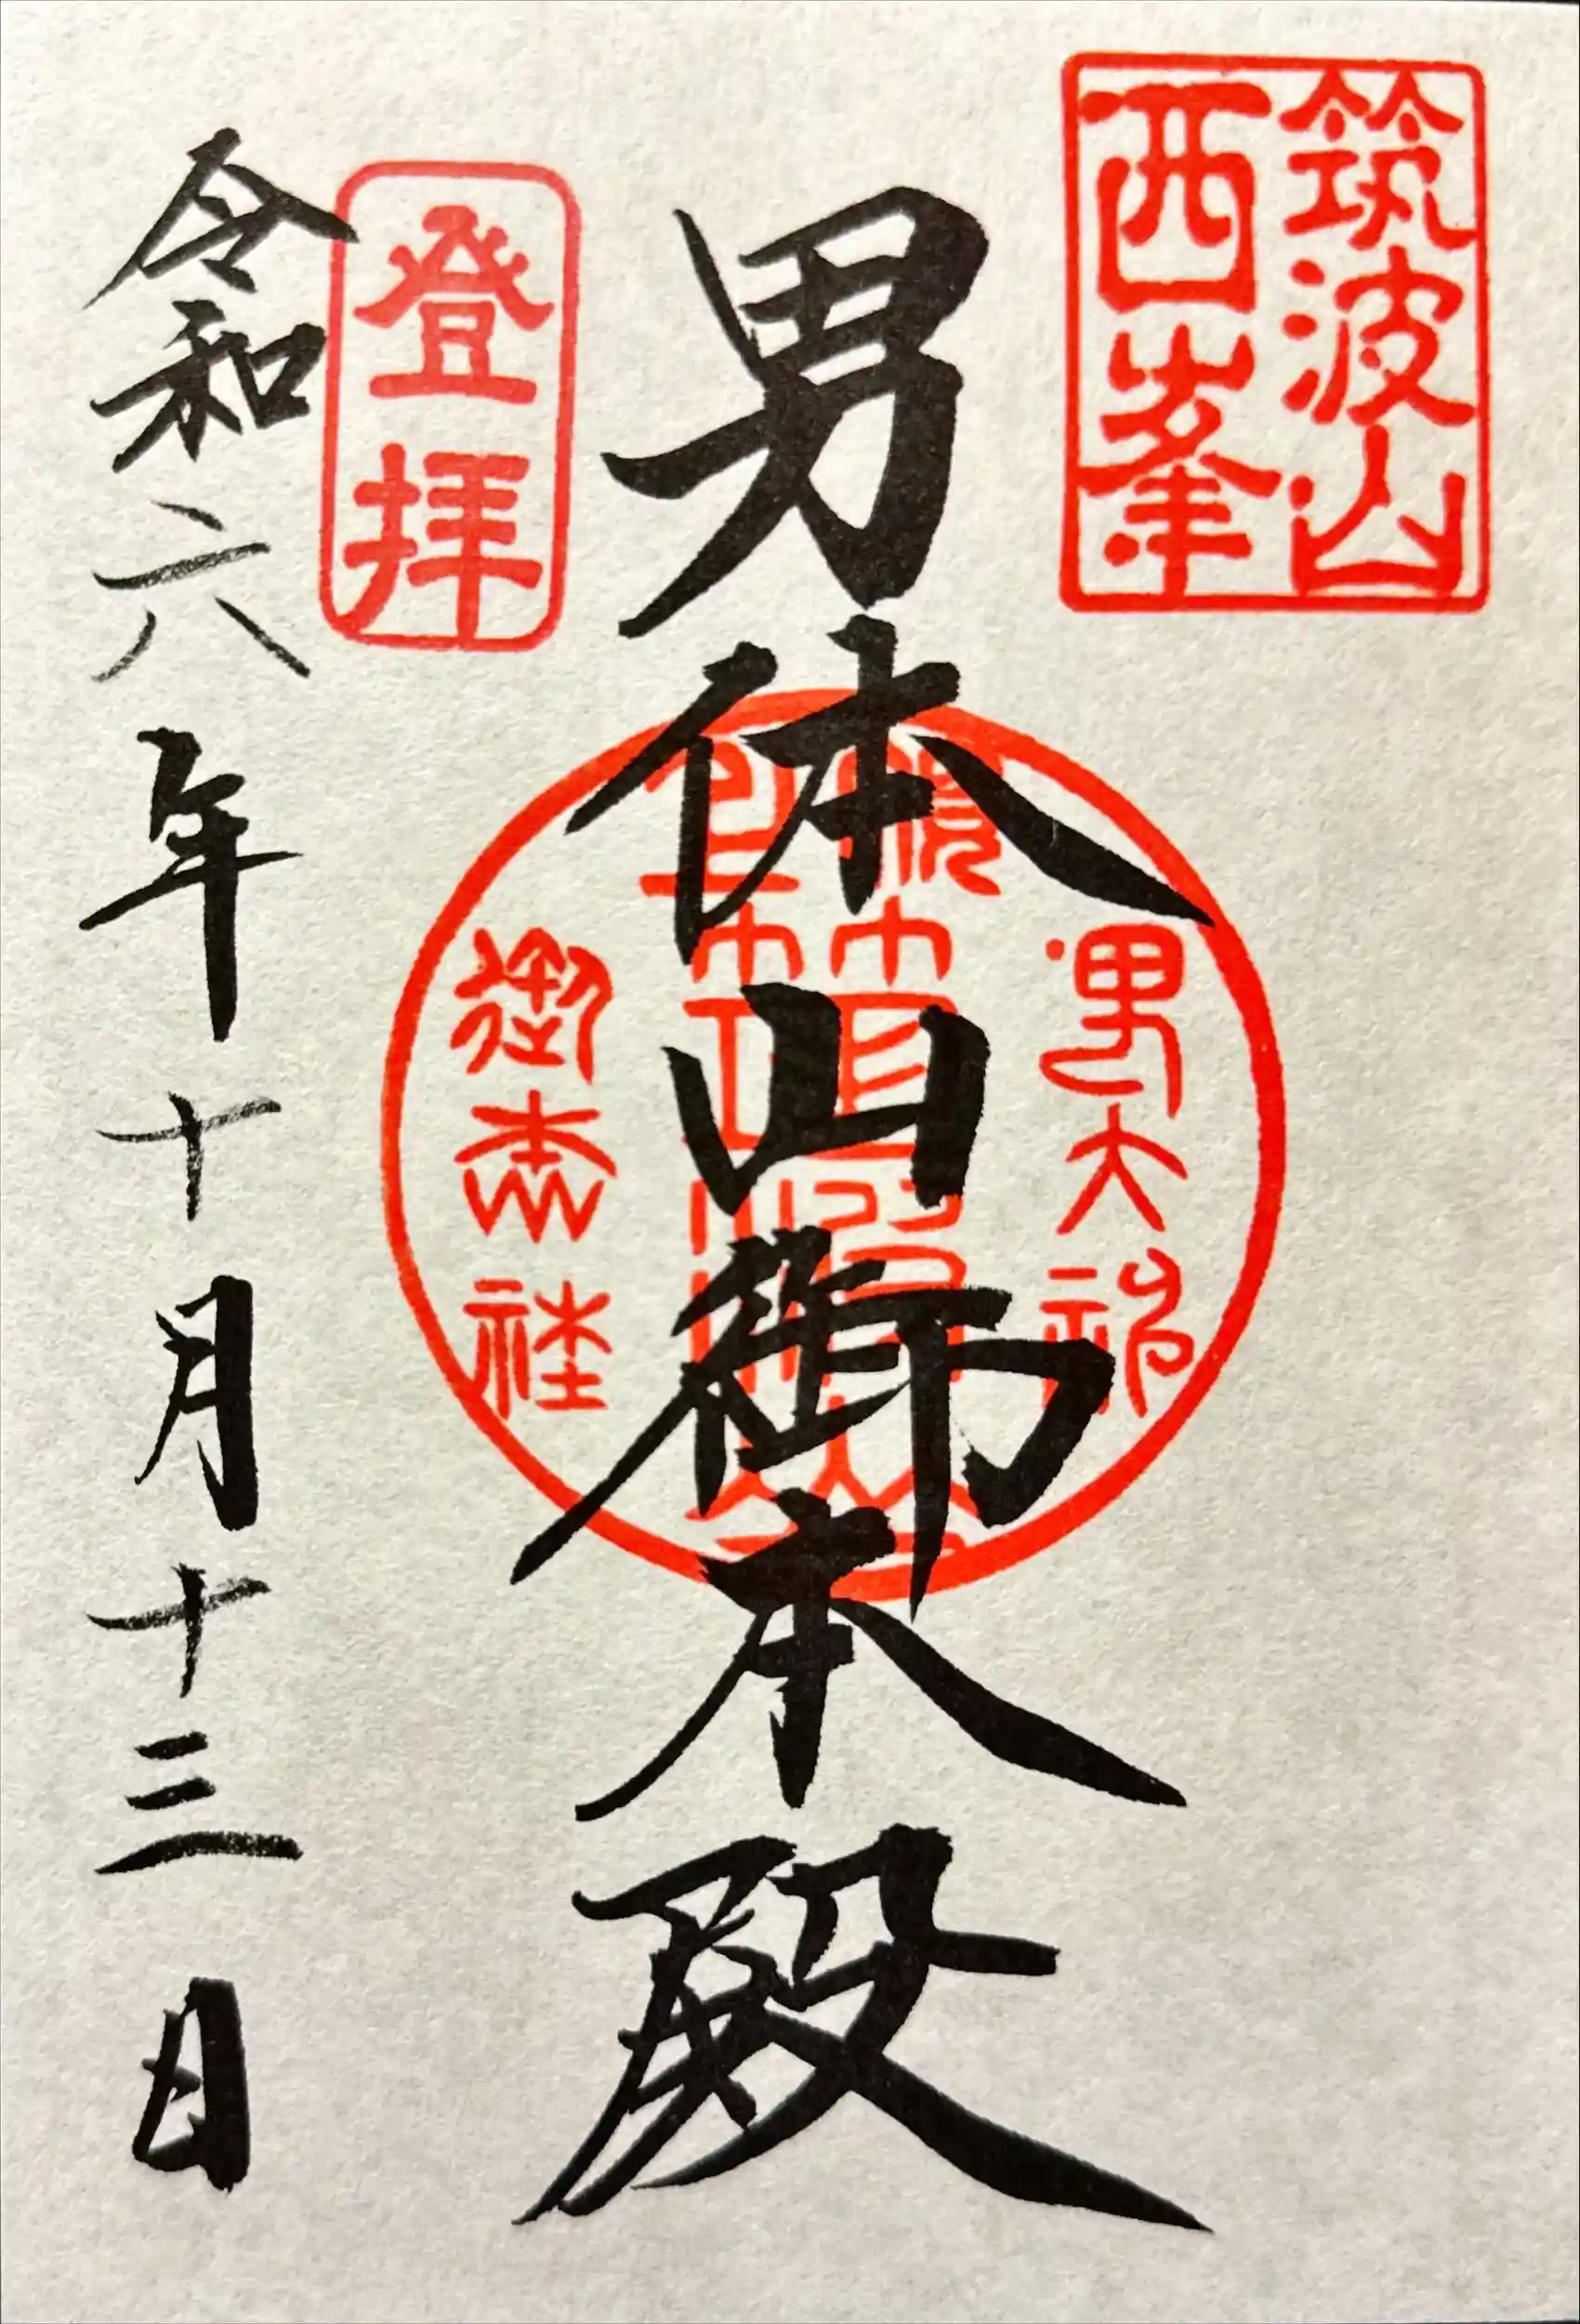 筑波山
西峯
男体山御本殿
登拝
令和六年十月十三日
男大神
御本社